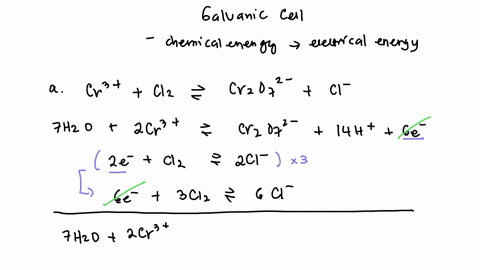 Galvanic Cell
- chemical energy → electrical energy
a. Cr³⁺ + Cl2 ⇌ Cr2O7²⁻ + Cl⁻
7H2O + 2Cr³⁺ ⇌ Cr2O7²⁻ + 14H⁺ + 6e⁻
( 2e⁻ + Cl2 ⇌ 2Cl⁻ ) ×3
6e⁻ + 3Cl2 ⇌ 6Cl⁻
7H2O + 2Cr³⁺